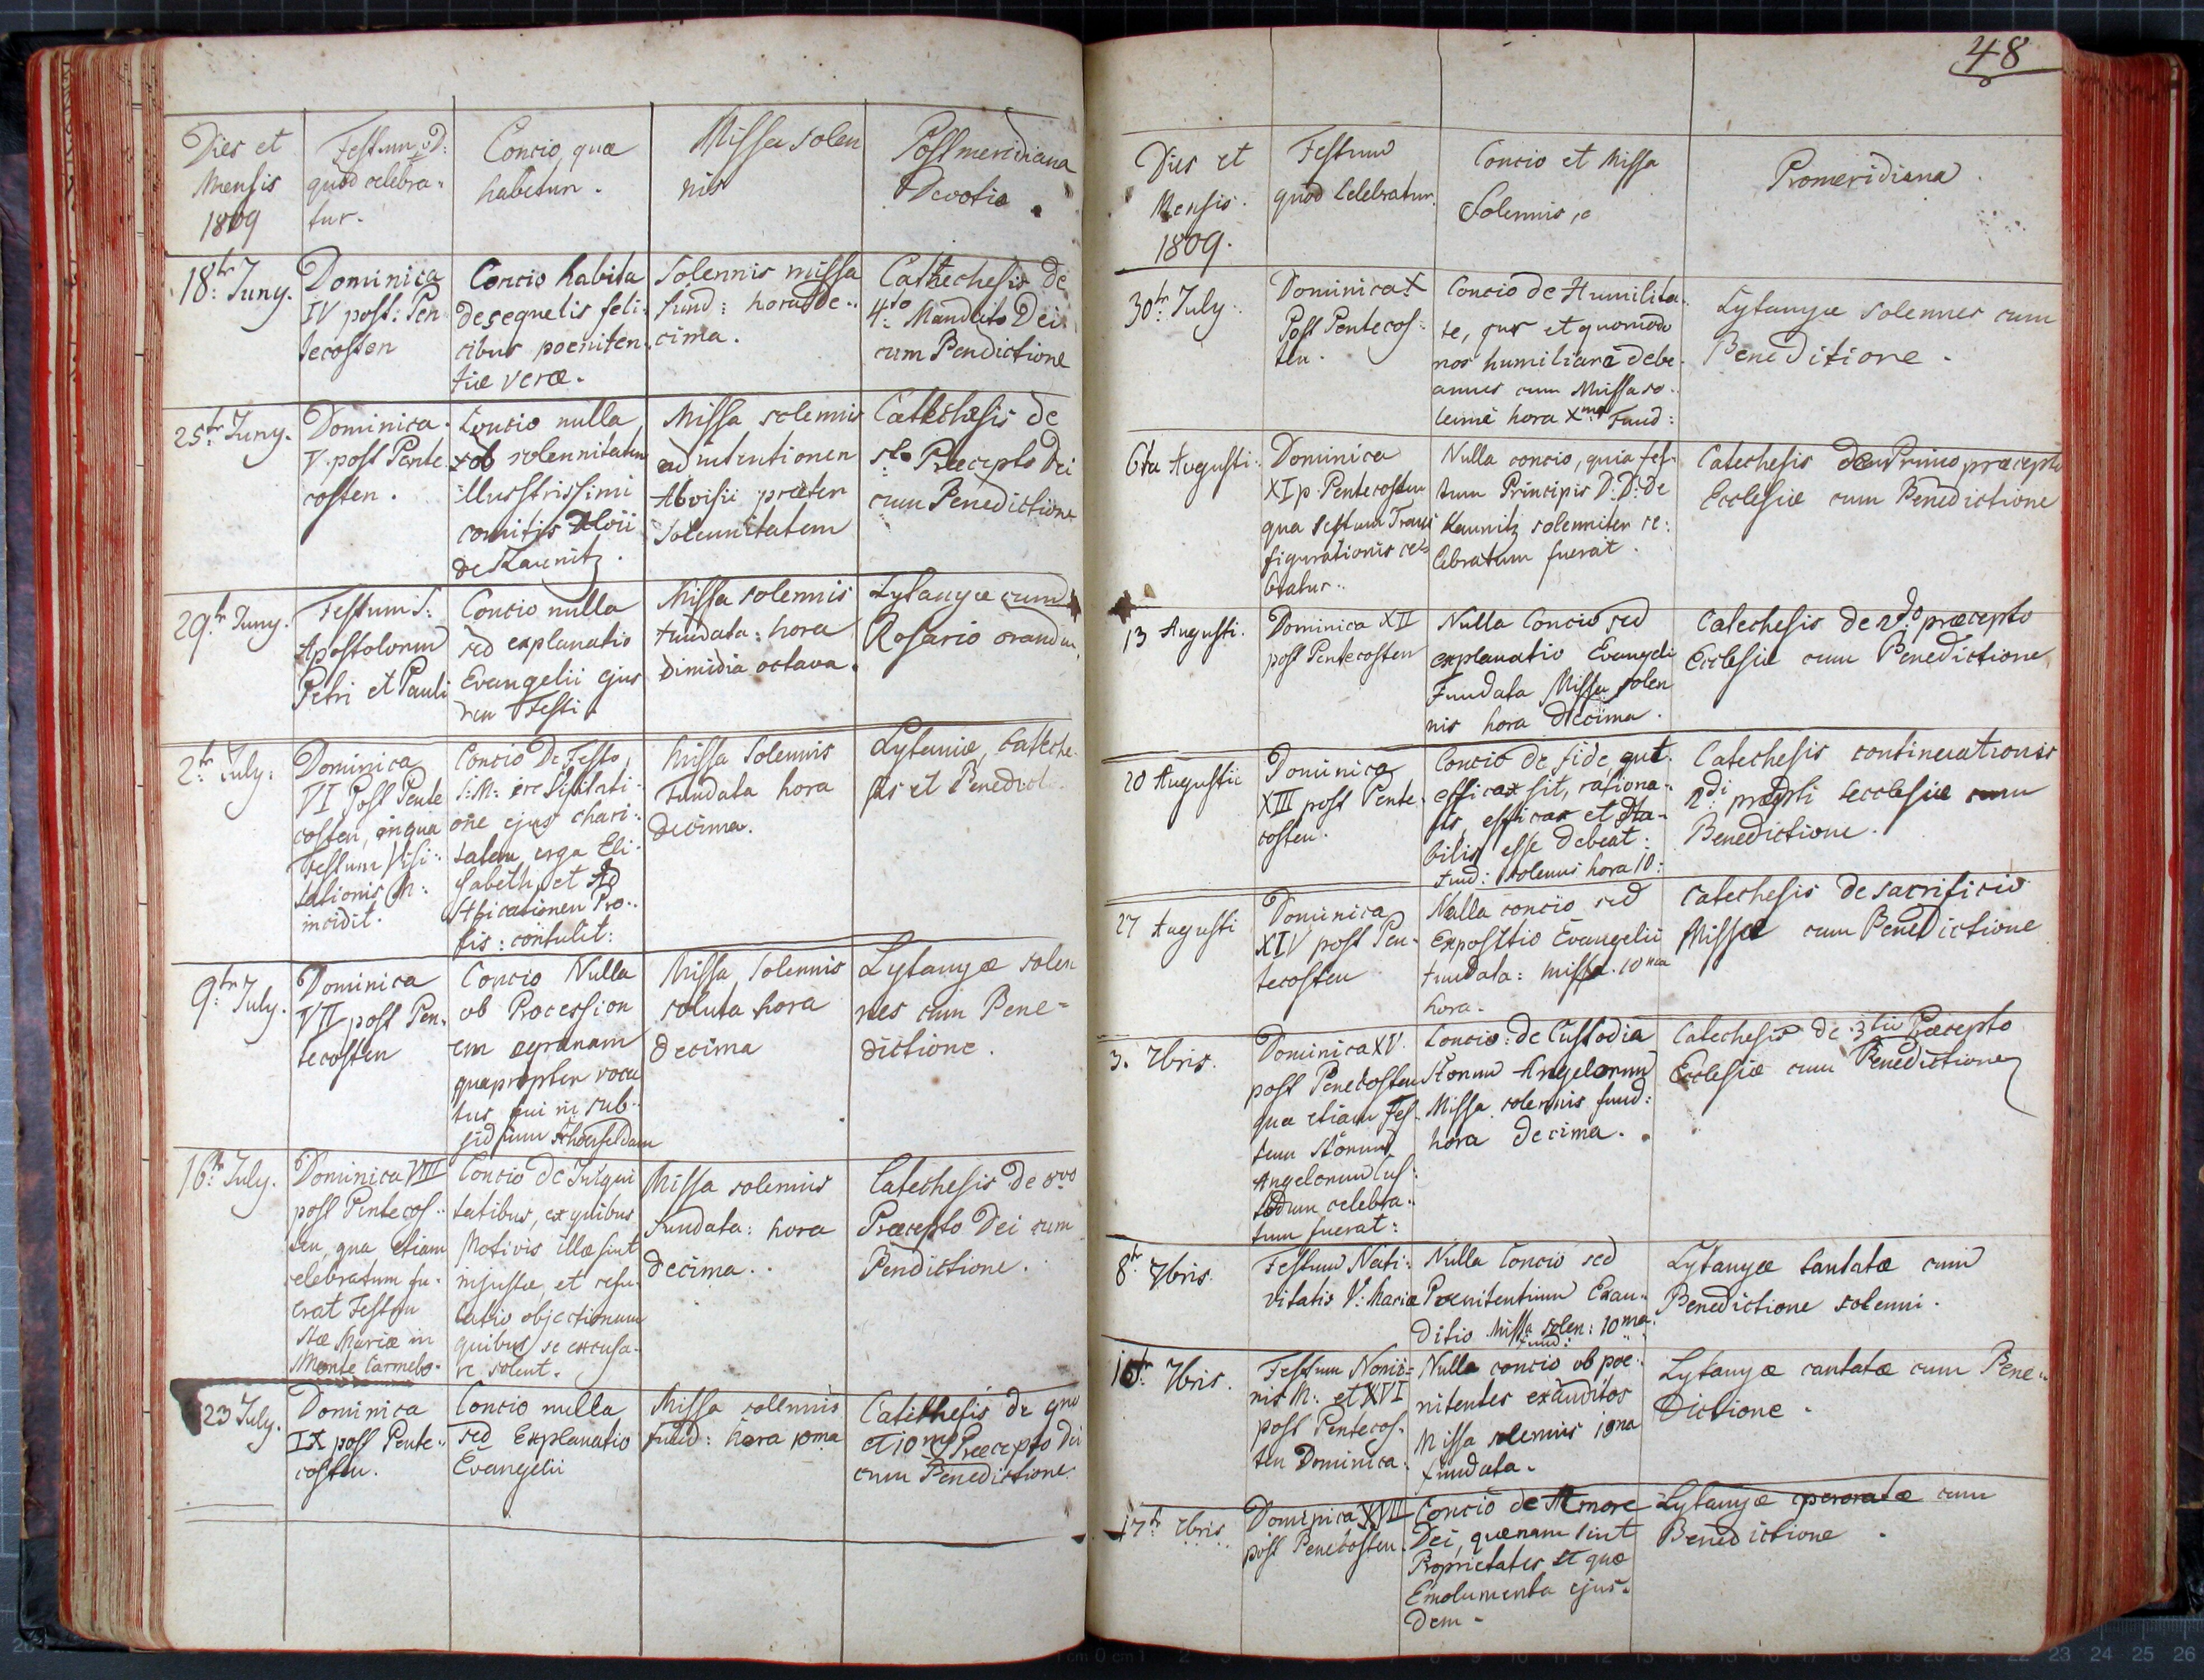 Dies et
Mensis
1809
Festum D:
quod celebra-
tur.
Concio quæ
habetur.
Missa solen
nis
Postmeridiana
Devotio.
18:tr Juny.
Dominica
IV post: Pen
tecosten
Concio habita
de sequelis feli-
cibus poeniten-
tiæ veræ.
Solennis missa
fund: hora de-
cima.
Cathechesis de
4:to Mandato Dei
cum Bendictione
25:tr Juny.
Dominica
V. post Pente
costen.
Concio nulla
ob solennitatem
illustrissimi
comitis Aloii
de Kaunitz.
Missa solennis
ad intentionem
Aloisii præter
Solennitatem
Cathechesis de
5to Præcepto Dei
cum Benedictione
29:tr Juny.
Festum S:
Apostolorum
Petri et Pauli
Concio nulla
sed explanatio
Evangelii ejus
dem Festi.
Missa solennis
fundata: hora
dimidia octava.
Lytanyæ cum
Rosario orandæ.
2:tr July.
Dominica
VI Post Pente
costen, in qua
Festum Visi-
tationis M:
incidit.
Concio De Festo
B: M: ejus chari-
tatem erga Eli-
sabeth, et
contulit:
Missa Solennis
Fundata hora
decima.
Lytaniæ, Cateche
sis et Benedict
9:tr July.
Dominica
VII post Pen-
tecosten
Concio Nulla
ob Procession
em agranam
quapropter voca
tus fui in sub-
sidium Schönfeldam
Missa Solennis
soluta hora
decima
Lytanyæ solen
nes cum Bene=
dictione.
16:tr July.
Dominica VIII
post Pentecos-
ten, qua etiam
celebratum fu-
erat Festum
Stæ Mariæ in
Monte Carmelo.
Concio de Iniqui
tatibus, ex quibus
Motivis illæ sint
injustæ, et refu-
tatio objectionum
quibus se excusa-
re solent.
Missa solennis
fundata: hora
decima.
Catechesis de 8vo
Præcepto Dei cum
Bendictione.
23 July.
Dominica
IX post Pente-
costen.
Concio nulla
sed Explanatio
Evangelii
Missa sollennis
fund: hora 10ma
Catethesis de 9no
et 10mo Præcepto Dei
cum Benedictione.
48
Dies et
Mensis.
1809.
Festum
quod Celebratur.
Concio et Missa
Solennis
Promeridiana.
30:tr July.
Dominica X
Post Pentecos-
ten.
Concio de Humilita-
te, cur et quomodo
nos humiliare debe-
amus cum Missa so-
lenni hora Xma Fund:
Lytanyæ solennes cum
Beneditione.
6ta Augusti.
Dominica
XI p. Pentecosten
qua Festum Trans
figurationis ce-
lebratur.
Nulla concio, quia fes-
tum Principis D: D: De
Kaunitz solenniter ce-
lebratum fuerat.
Catechesis de Primo præcepto
Ecclesiæ cum Benedictione
13 Augusti.
Dominica XII
post Pentecosten
Nulla Concio sed
explanatio Evangeli
Fundata Missa solen
nis hora decima.
Catechesis de 2do præcepto
Ecclesiæ cum Benedictione
20 Augusti
Dominica
XIII post Pente-
costen.
Concio de fide, qut.
efficax sit, rationa-
lis efficax et sta-
bilis esse debeat:
Fund: solenni hora 10:
Catechesis continuationis
2di præcepti ecclesiæ cum
Benedictione.
27 Augusti
Dominica
XIV post Pen-
tecosten
Nulla concio sed
Expositio Evangelii
fundata: missa. 10ma
hora.
Catechesis de sacrificio
Missæ cum Benedictione
3. 7bris.
Dominica XV.
post Penetcosten
qua etiam Fes-
tum Stŏrum
Angelorum Cus-
todum celebra-
tum fuerat:
Concio: de Custodia
Storum Angelorum
Missa solennis fund:
hora decima.
Catechesis de 3tio Præcepto
Ecclesiæ cum Benedictione
8tr 7bris.
Festum Nati-
vitatis V: Mariæ
Nulla Concio sed
Poenitentium Exau-
ditio Missa solen: 10ma
fund:
Lytanyæ cantatæ cum
Benedictione solenni.
10tr 7bris.
Festum Nomi-
nis M: et XVI
post Pentecos-
ten Dominica.
Nulla concio ob poe-
nitentes exauditos
Missa solennis 10ma
fundata.
Lytanyæ cantatæ cum Bene-
dictione.
17tr 7bris.
Dominica XVII
post Penetosten.
Concio de Amore
Dei, quænam sint
Proprietates et quæ
Emolumenta ejus-
dem.
Lytanyæ peroratæ cum
Benedictione.